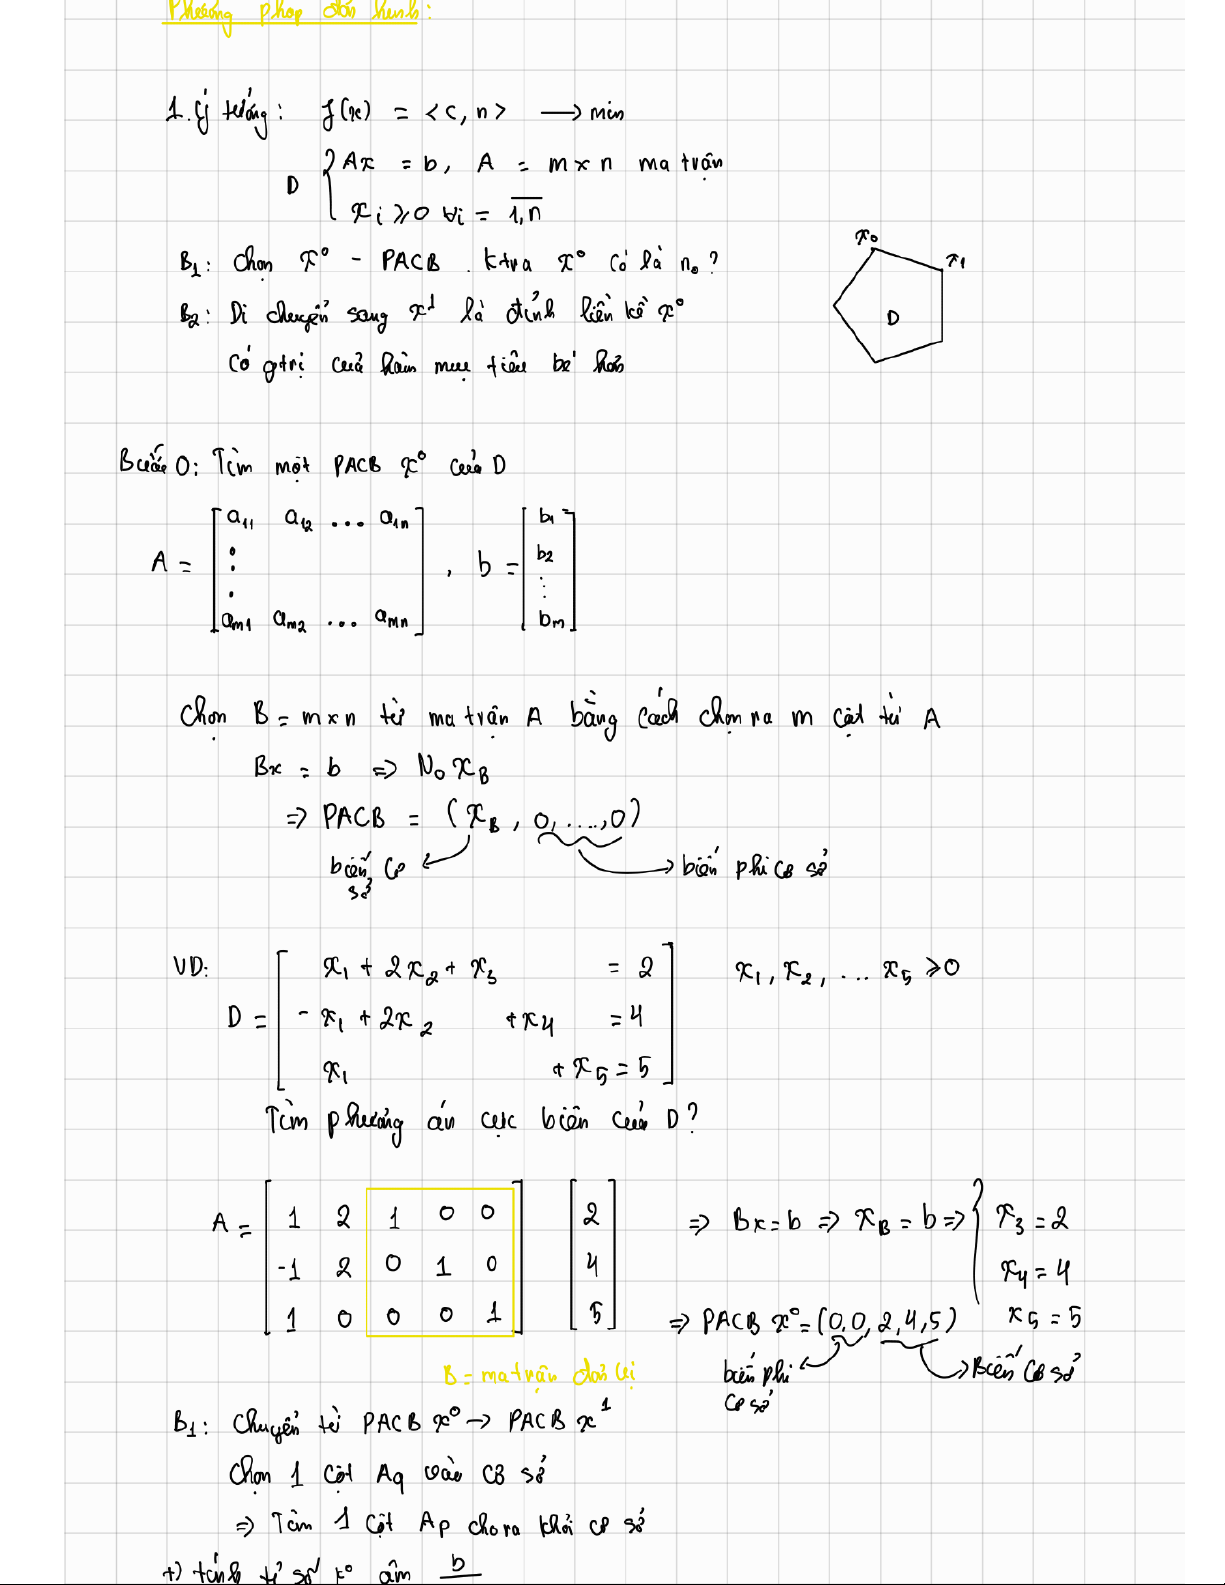 Phương pháp đơn hình:
1. Ý tưởng: f(x) = <c, n> → min
D { Ax = b, A = m x n ma trận
xi ⩾ 0 ∀i = 1,n
B1: Chọn x⁰ - PACB . Ktra x⁰ có là n₀?
B2: Di chuyển sang x¹ là đỉnh liền kề x⁰
có gtrị của hàm mục tiêu bé hơn
x₀
x1
D
Bước 0: Tìm một PACB x⁰ của D
A = [ a11 a12 ... a1n
⋮
am1 am2 ... amn ] , b = [ b1
b2
⋮
bm ]
Chọn B = m x n từ ma trận A bằng cách chọn ra m cột từ A
Bx = b => N₀ xB
=> PACB = (xB, 0, ...., 0)
biến cơ sở
biến phi cơ sở
VD:
D = [ x1 + 2x2 + x3 = 2 ] x1, x2, ... x5 ⩾ 0
- x1 + 2x2 + x4 = 4
x1 + x5 = 5
Tìm phương án cực biên của D?
A = [ 1 2 1 0 0 ] [ 2 ] => Bx = b => xB = b => { x3 = 2
-1 2 0 1 0 4 x4 = 4
1 0 0 0 1 5 x5 = 5
=> PACB x⁰ = (0,0, 2,4,5)
biến phi cơ sở
Biến cơ sở
B = ma trận đơn vị
B1: Chuyển từ PACB x⁰ → PACB x¹
Chọn 1 cột Aq vào cơ sở
=> Tìm 1 cột Ap cho ra khỏi cơ sở
+) tính tỉ số k⁰ âm b